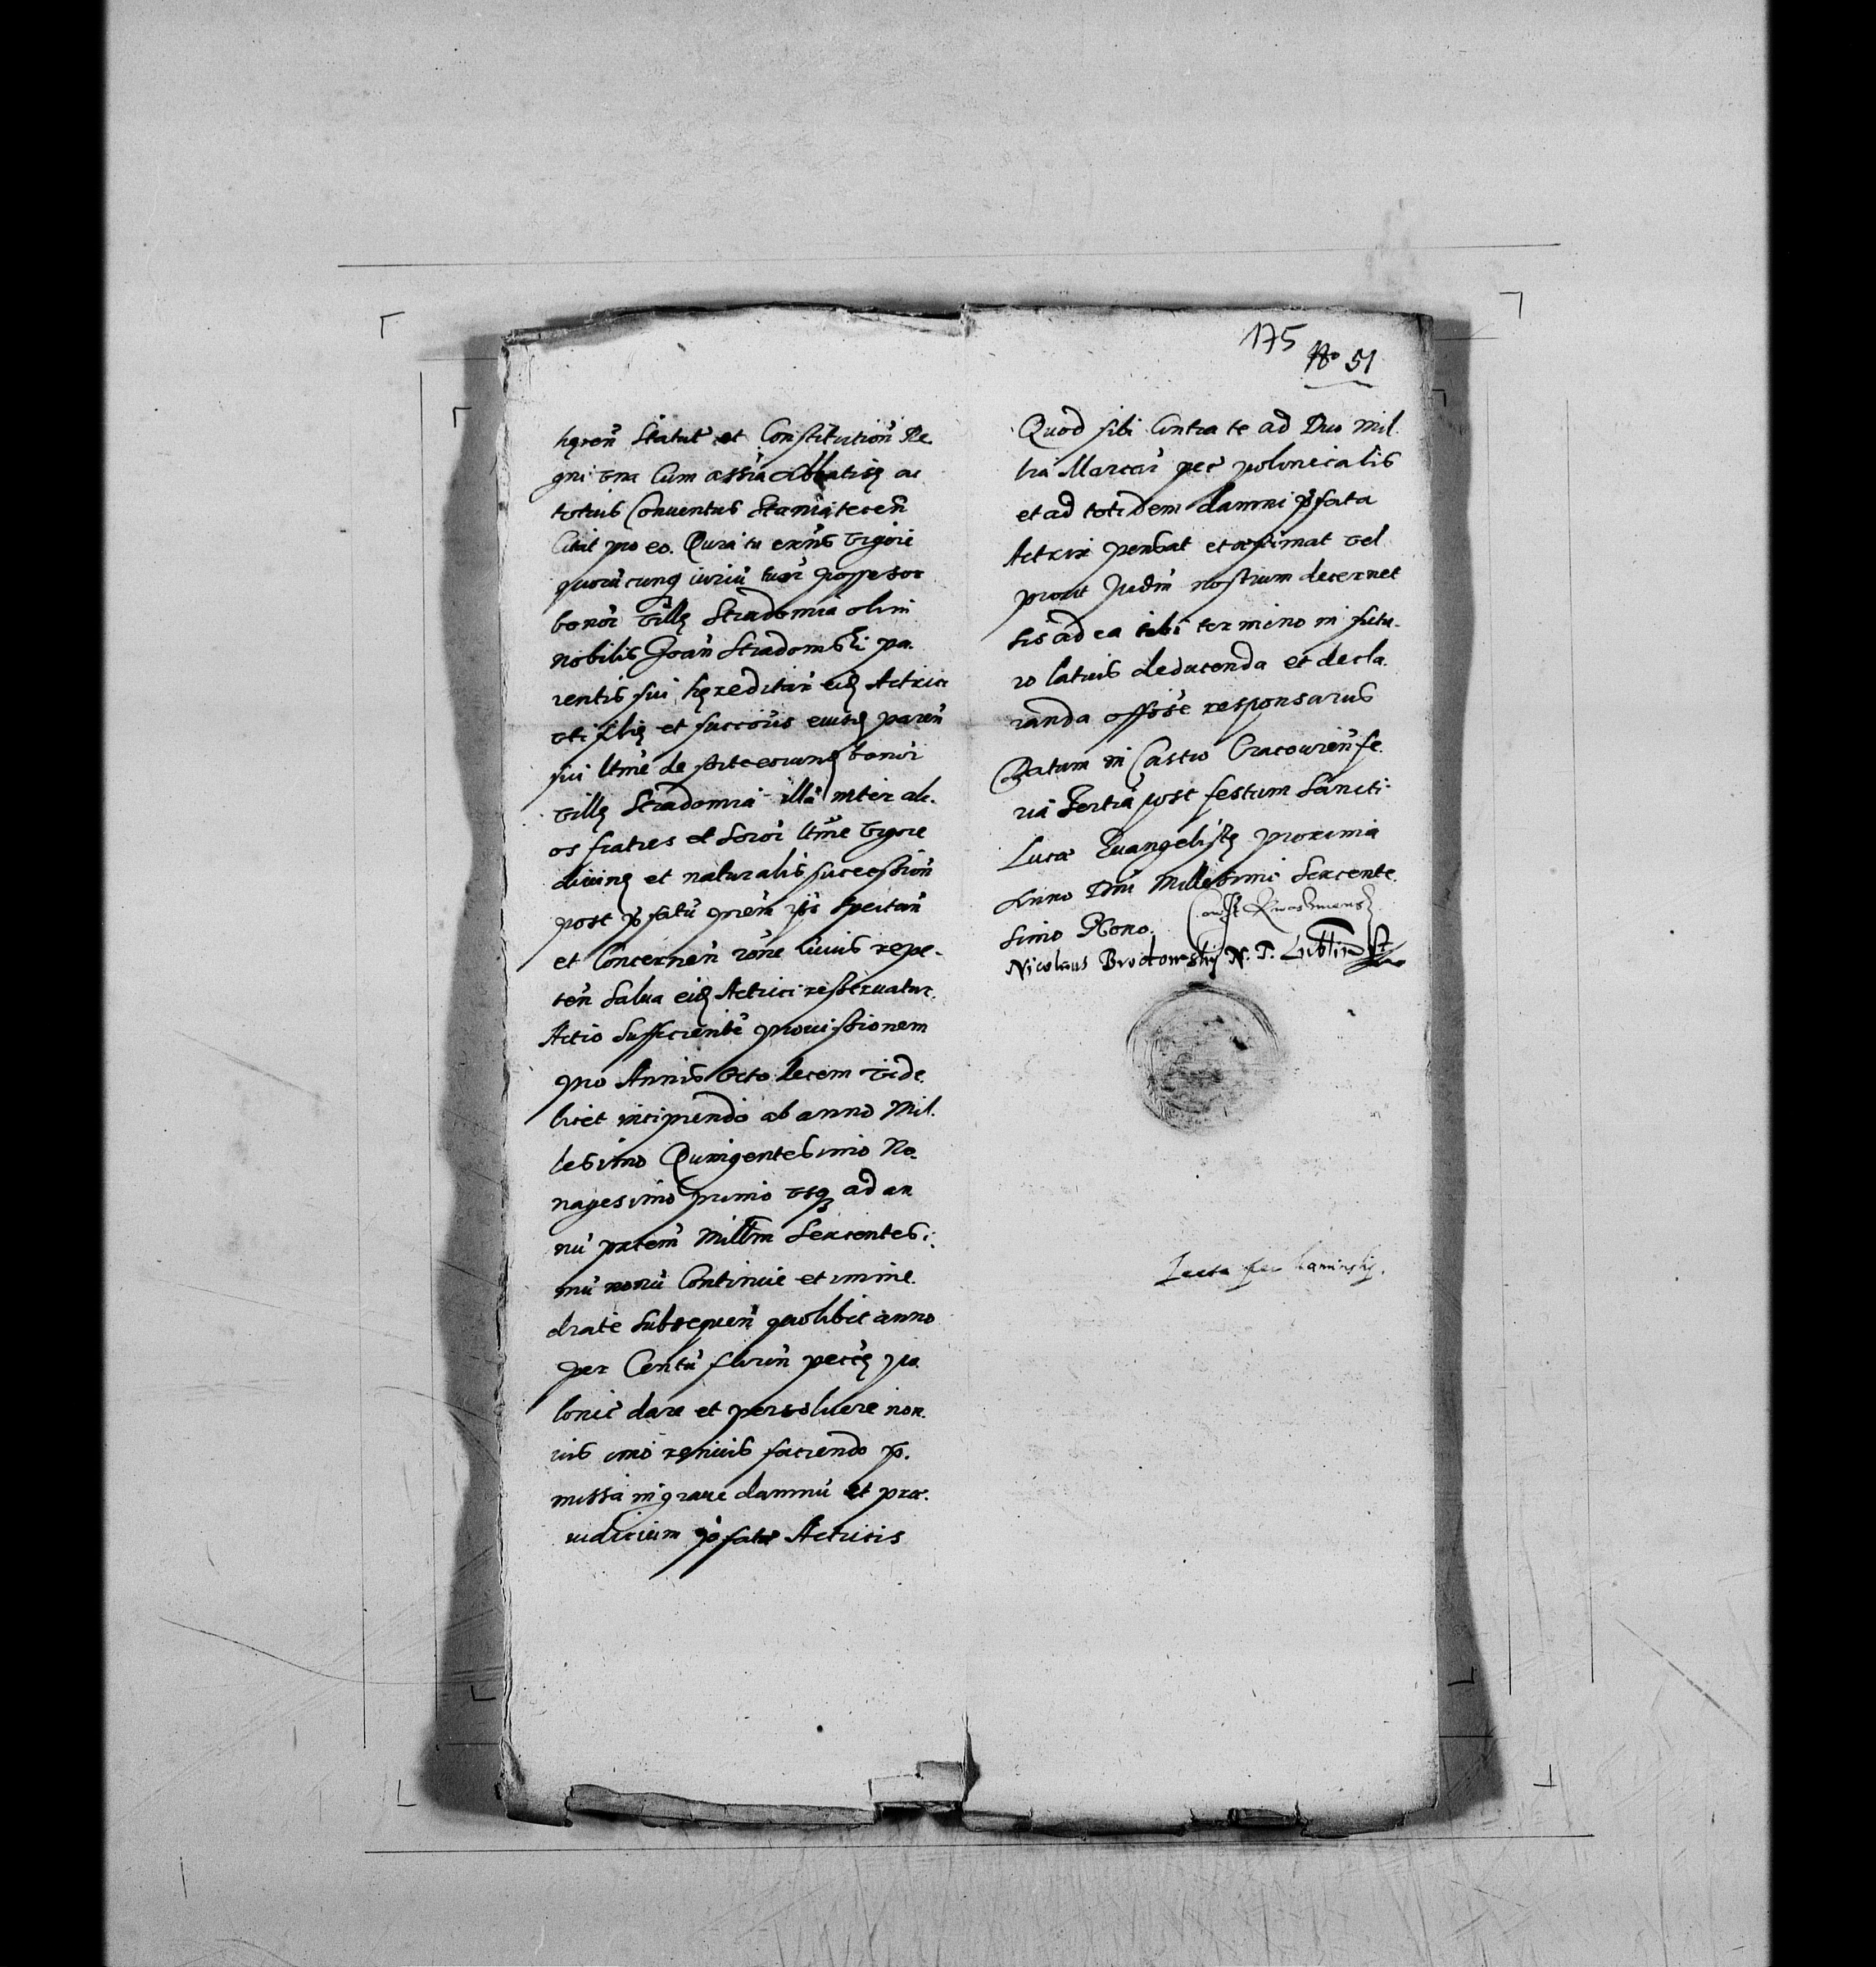 hęren̄ Statut̄ et Constitution̄ Re
gni vna Cum assña Abbatisę ac
totius Conuentus Staniątecen̄
Citat pro eo. Quia tu exn̄s vigore
quorūcunq iuriū tuor̄ possessor
bonor̄ villę Stradomia olim
nobilis Joan̄ Stradomski pa.
rentis sui hęreditar̄ eid Actrici
vti filię et succōris eiusd paren̄
sui ltm̄e de sorte eorund bonor̄
villę Stradomia illa inter ali.
os fratres et Soror̄ ltm̄e vigore
diuinę et naturalis successīon̄
post pfatū prēm ipi spectan̄
et Concernen̄ rōne cuius repe-
ten̄ Salua eid Actrici resseruatur
Actio Sufficientē prouissionem
pro Annis Octo decem vide
licet incipiendo ab anno Mil.
lesimo Quingentesimo No.
nagesimo primo vsq ad an
nū pntem̄ Millm̄ Sexcentesi:
mū nonū Continue et imme
diate Subsequen̄ quolibet anno
per Centū floren̄ pecc̄ę po
lonic̄ dare et persoluere non
uis imo renuis faciendo p.
missa in graue damnū et prae.
iudicium pfatæ Actricis
175
No 51
Quod sibi Contra te ad Duo mil.
lia Marcar̄ pec̄ polonicalis
et ad totidem damni pfata
Actrix pensat et æstimat vel
prout Judm̄ nostrum decernet
sis ad ea tibi termino in futu.
ro latius deducenda et decla.
randa offōse responsurus
Datum in Castro Cracouien̄ fe
ria Tertia post festum Sancti
Lucæ Euangelistę proxima
Anno Dn̄i Millesimi Sexcente
simo Nono.
Nicolaus Brodowsky N. T. Lublin
Lecta per Kaminsky.